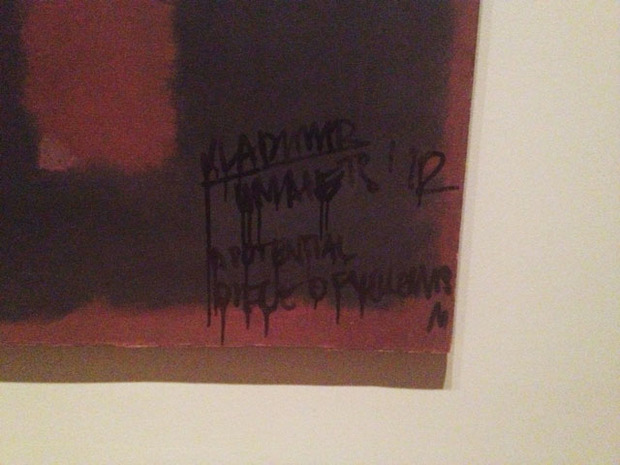 VLADIMIR
UMANETS '12
A POTENTIAL
PIECE OF YELLOWISM